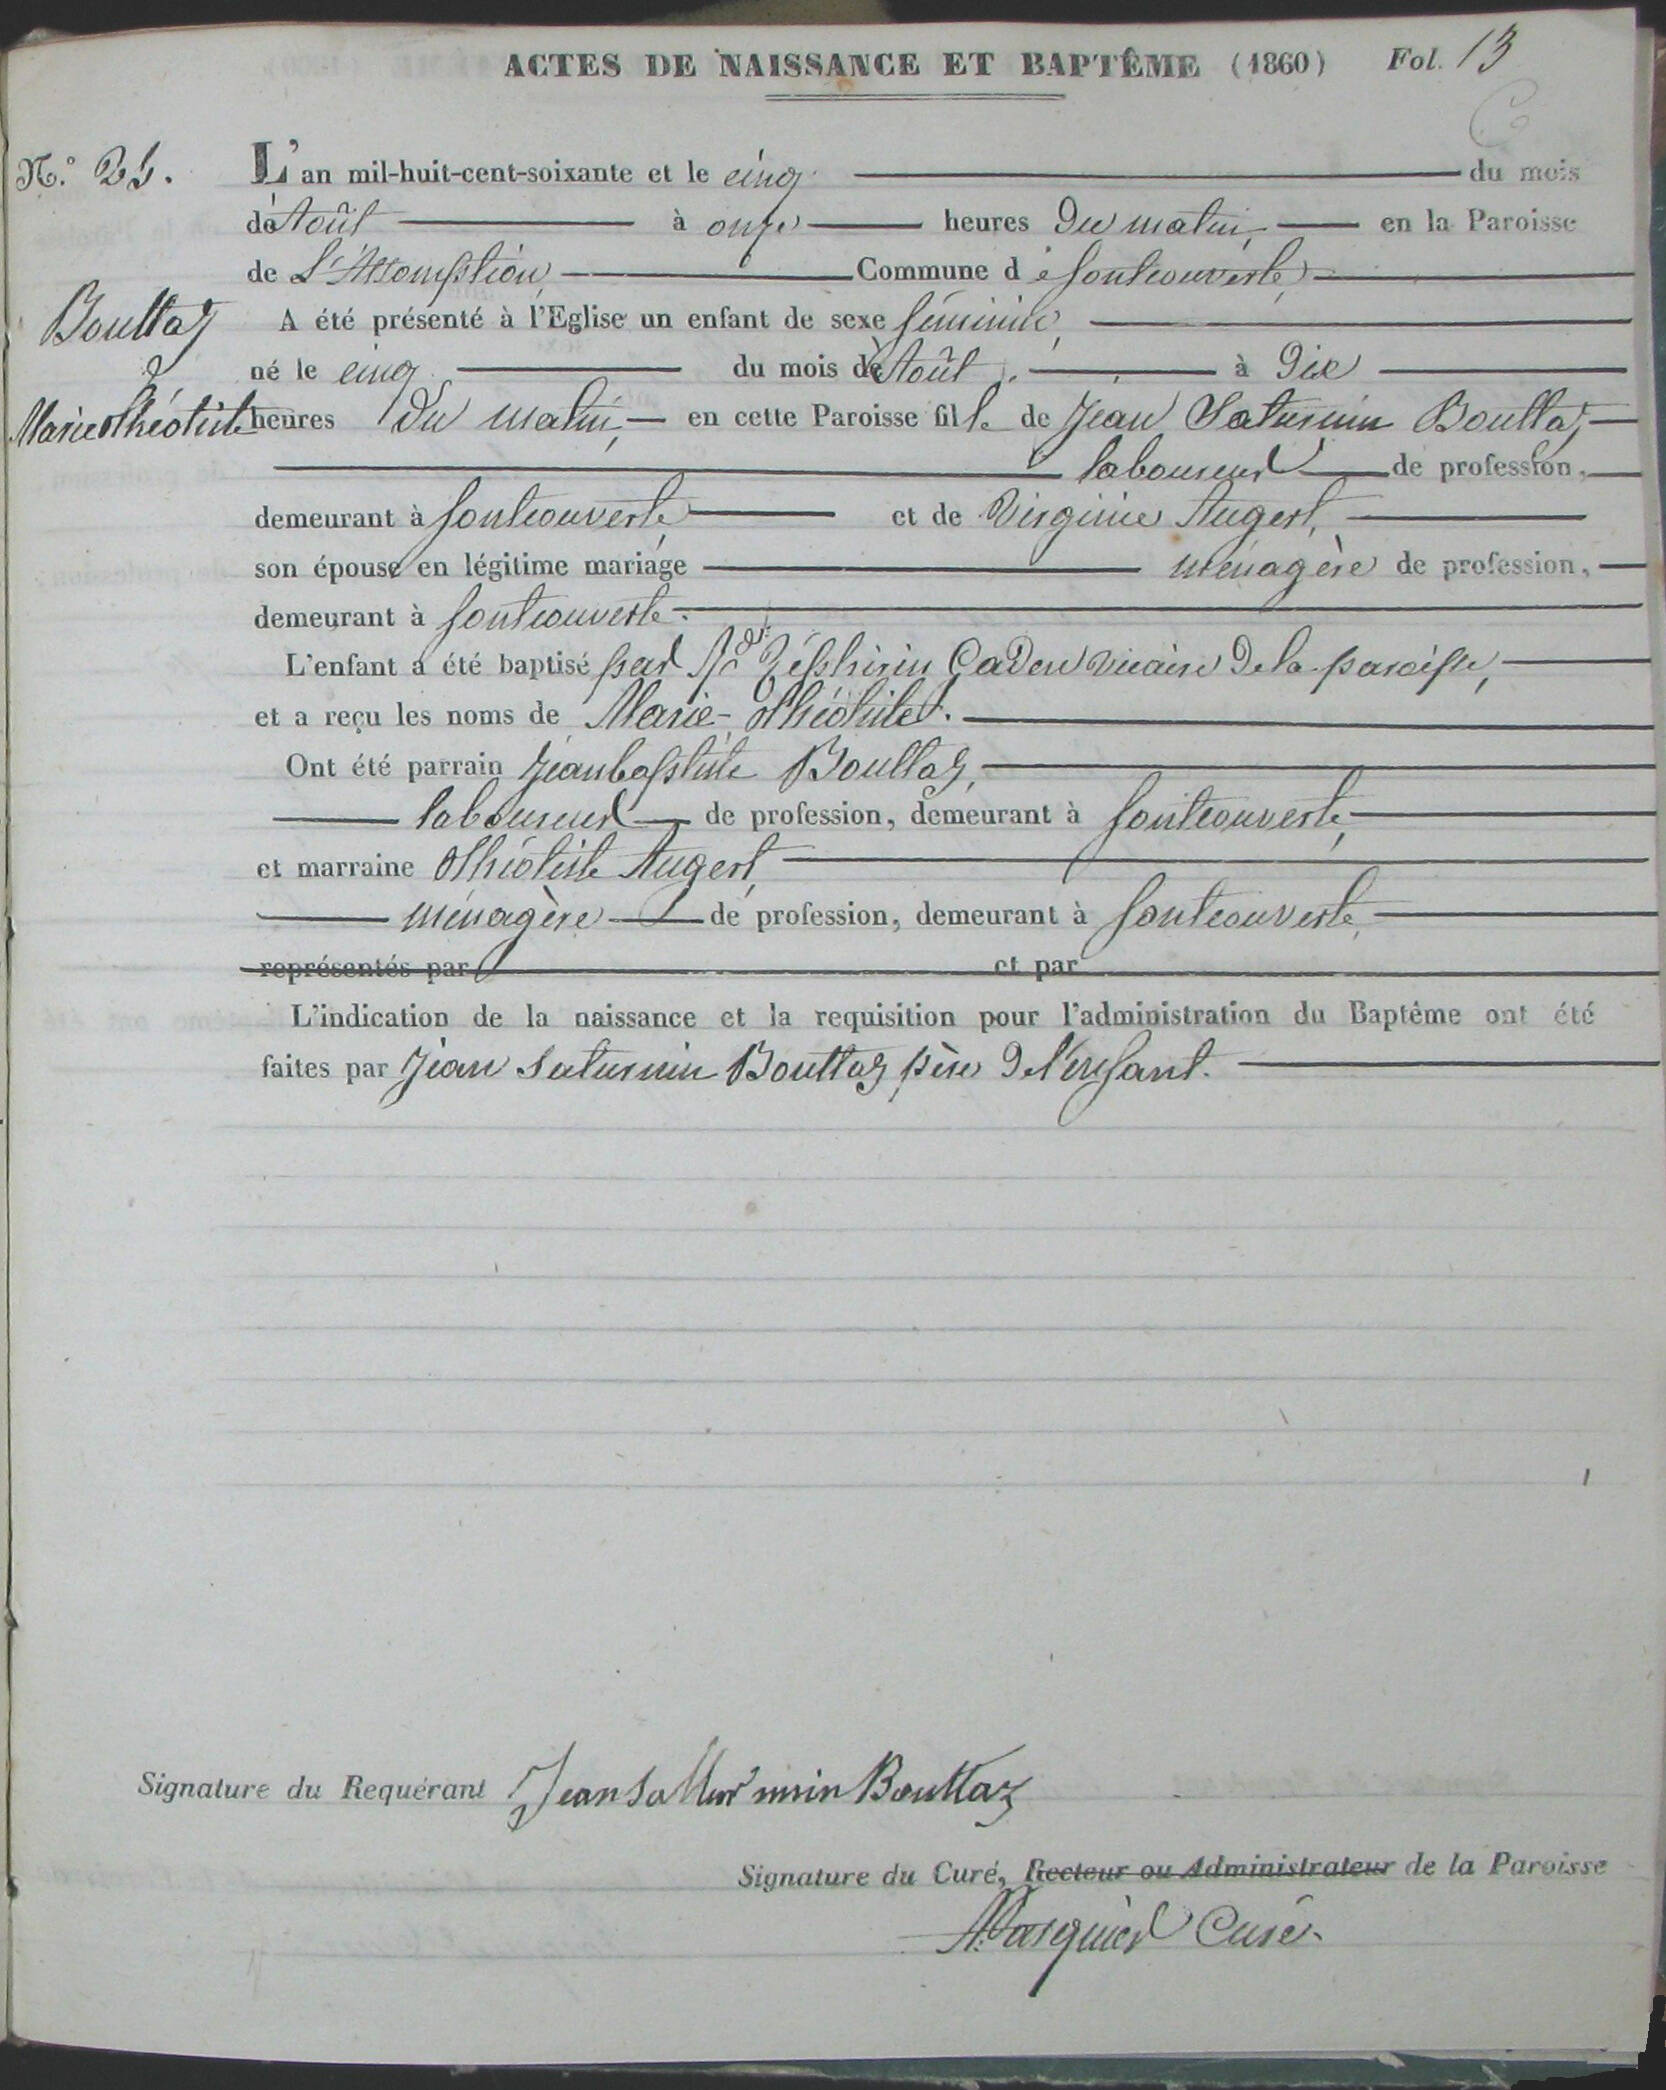 ACTES DE NAISSANCE ET BAPTÊME (1860) Fol. 13
N.º 25.
L'an mil-huit-cent-soixante et le cinq du mois
de Août à onze heures du matin, en la Paroisse
de L'Assomption, Commune de fontcouverte,
Bouttaz
A été présenté à l'Eglise un enfant de sexe féminin,
né le cinq du mois de Août, à dix
Marie Théotiste
heures du matin, en cette Paroisse fille de Jean Saturnin Bouttaz,
laboureur de profession,
demeurant à fontcouverte, et de Virginie Augert,
son épouse en légitime mariage ménagère de profession,
demeurant à fontcouverte.
L'enfant a été baptisé par Rd Zéphirin Caden vicaire de la paroisse,
et a reçu les noms de Marie-Théotiste.
Ont été parrain Jean baptiste Bouttaz,
laboureur de profession, demeurant à fontcouverte,
et marraine Théotiste Augert,
ménagère de profession, demeurant à fontcouverte,
représentés par et par
L'indication de la naissance et la requisition pour l'administration du Baptême ont été
faites par Jean Saturnin Bouttaz père de l'enfant.
Signature du Requérant Jean Satturnin Bouttaz
Signature du Curé, Recteur ou Administrateur de la Paroisse
Pasquier Curé.